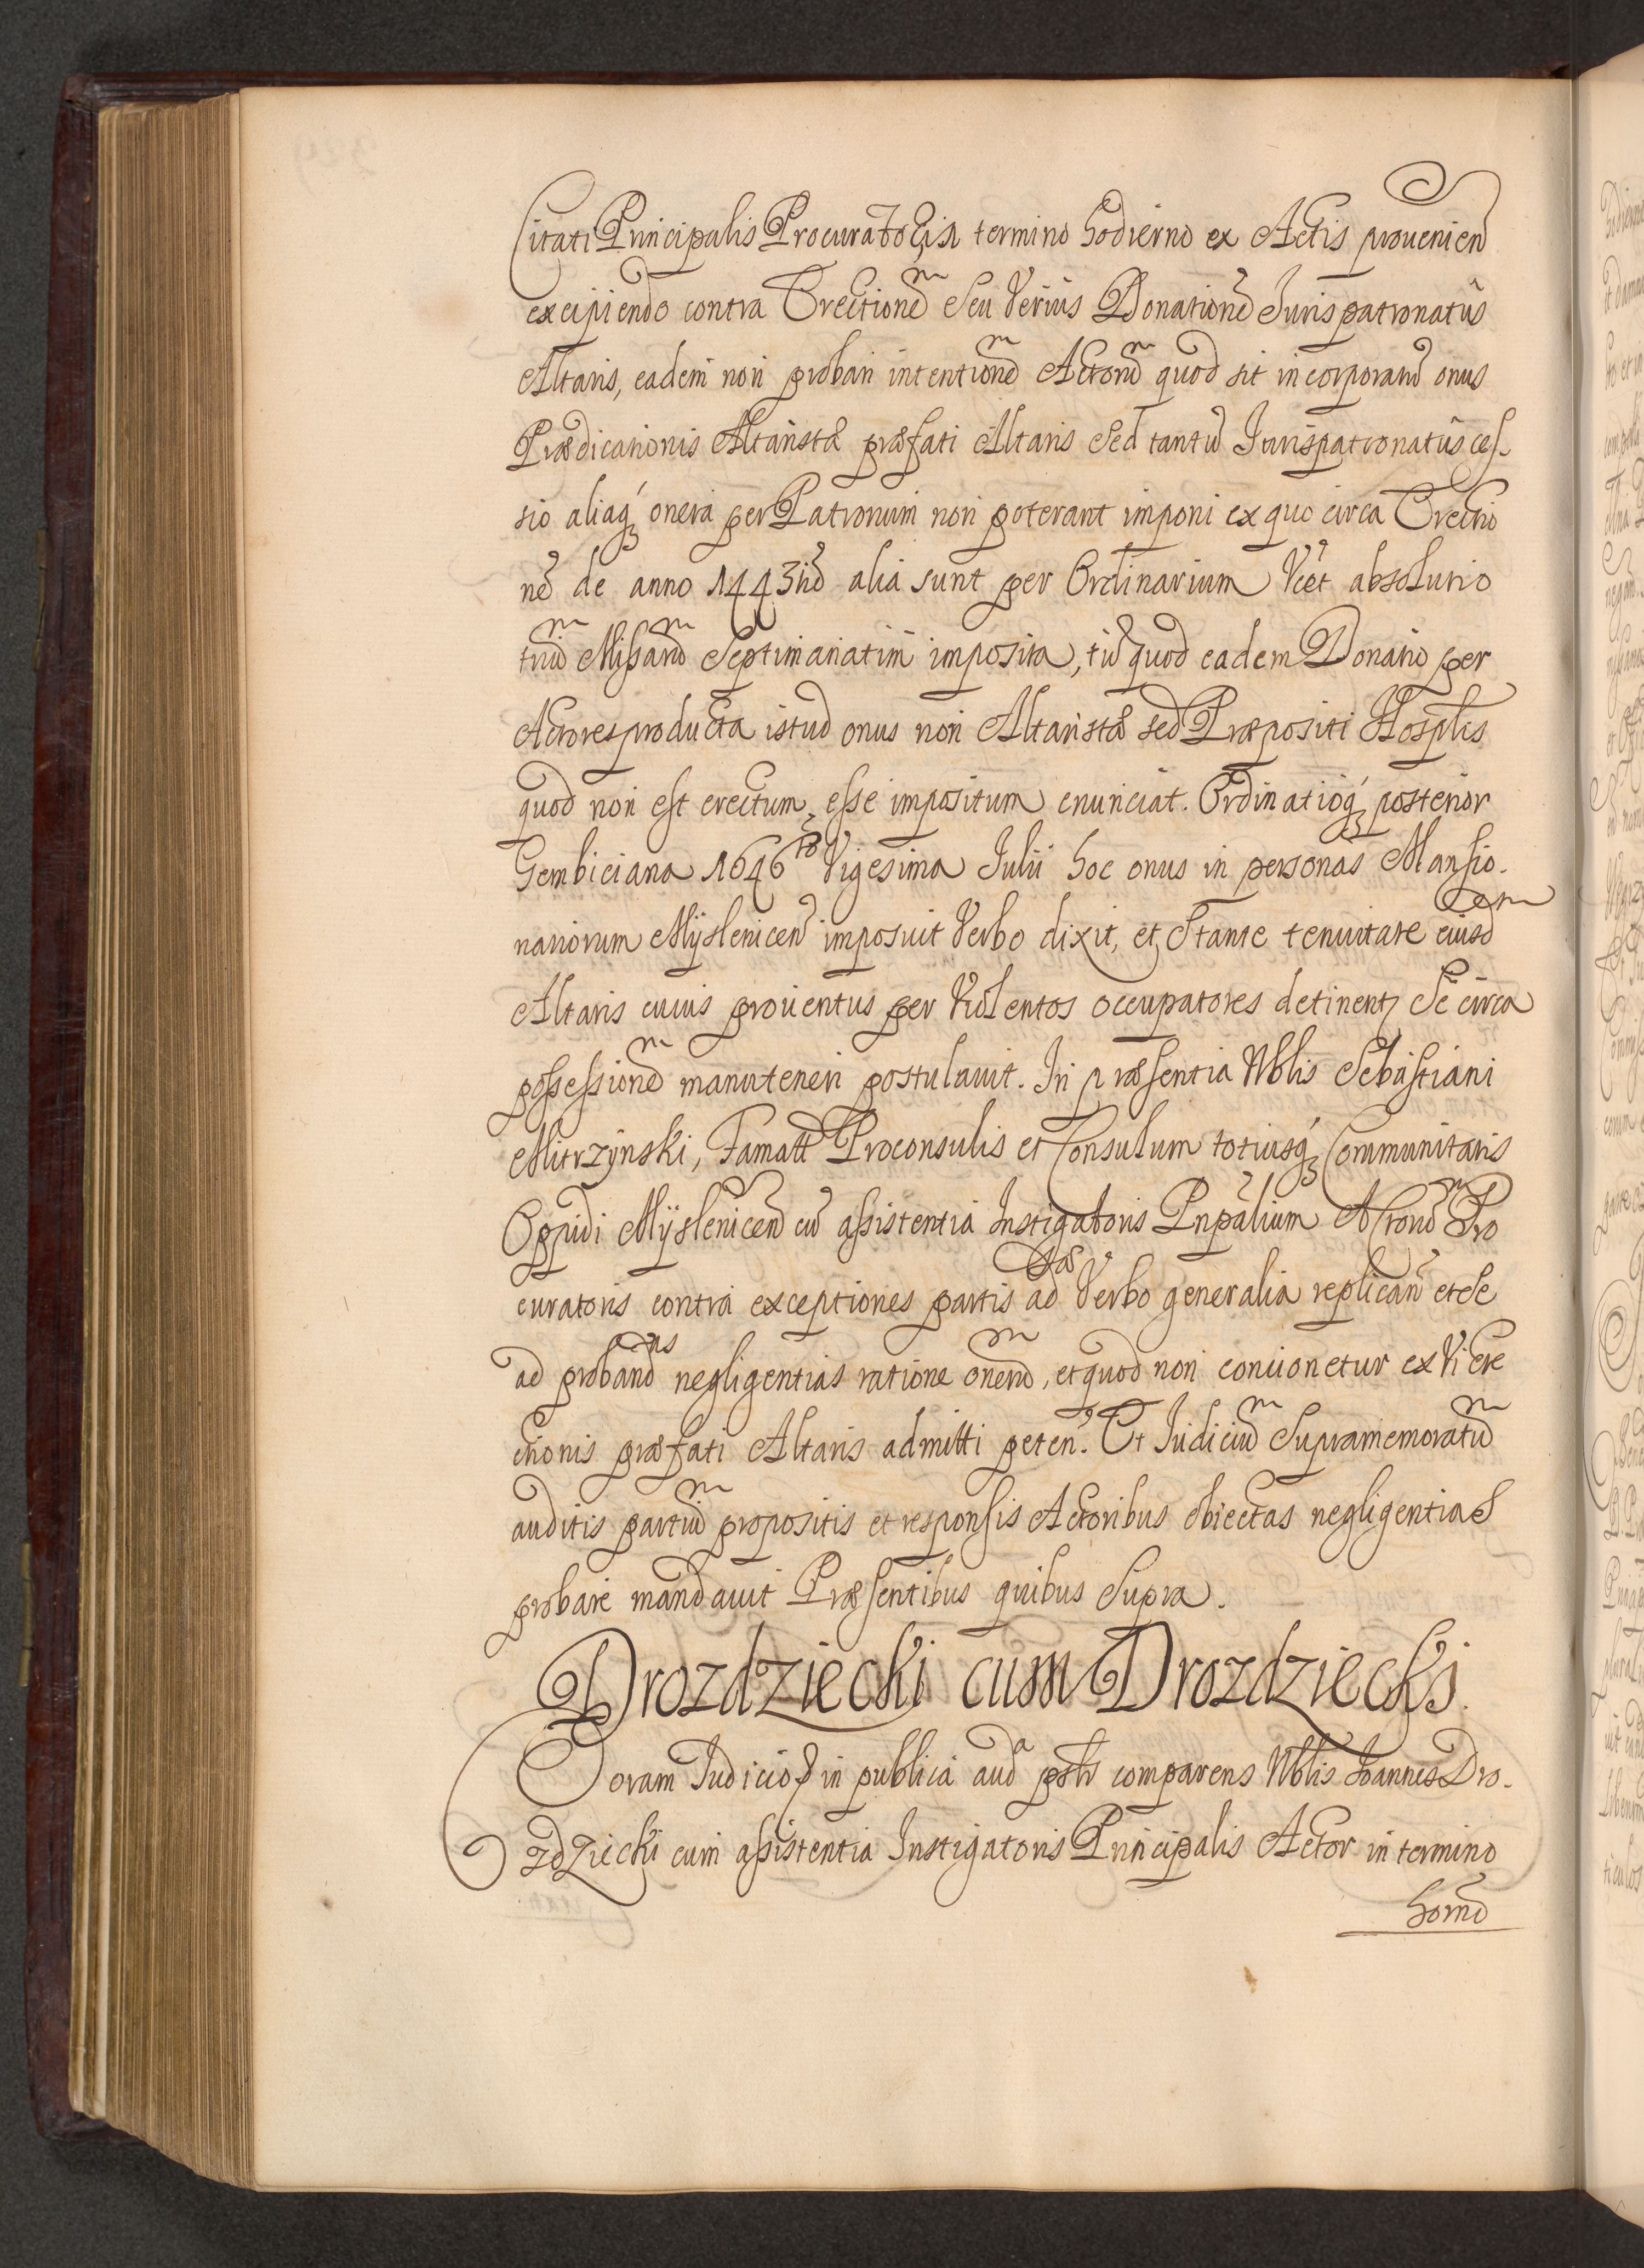 Citati Principalis Procurator in termino hodierno ex Actis provenien
excipiendo contra Erectionem seu verius Donationem Jurispatronatus
Altaris, eadem non probari intentionem Actorum quod sit incorporatum onus
Prædicationis Altaristæ præfati Altaris sed tantum Jurispatronatus ces-
sio aliaq, onera per Patronum non poterant imponi ex quo circa Erectio
nem de anno 1443tio alia sunt per Ordinarium vt absolutio
trium Missarum Septimanatim imposita, tum quod eadem Donatio per
Actores producta istud onus non Altaristæ sed Præpositi Hosplis
quod non est erectum esse impositum enunciat. Ordinatioq, posterior
Gembiciana 1646to Vigesima Julii hoc onus in personas Mansio-
nariorum Myslenicen imposuit verbo dixit, et stante tenuitate eiusdem
Altaris cuius proventus per violentos occupatores detinent, se circa
possessionem manuteneri postulavit. In præsentia Nblis Sebastiani
Mitrzynski, Famatt Proconsulis et Consulum totiusq, Communitatis
Oppidi Myslenicen cum assistentia Instigatoris Pnpalium Actorum Pro
curatoris contra exceptiones partis adversæ verbo generalia replican et se
ad probandas negligentias ratione onerum, et quod non concionetur ex vi Ere
ctionis præfati Altaris admitti peten. Et Judicium Supramemoratum
auditis partium propositis et responsis Actoribus obiectas negligentias
probare mandavit Præsentibus quibus Supra.
Drozdziecki cum Drozdziecki.
Coram Judicio in publica auda pstis comparens Nblis Joannes Dro-
zdziecki cum assistentia Instigatoris Principalis Actor in termino
horno